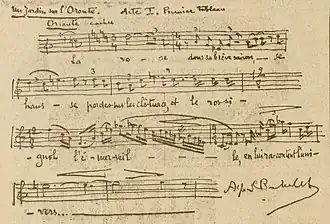 Un Jardin sur l'Oronte. Acte I. Premier tableau
Oriante cachée
La ro - se dans sa brève saison se
haus - se perdes sur les clôtures, et le ros - si -
gnol s'é - mer - veil - - le, en livra contest l'uni -
vers....
Alfred Bachelet